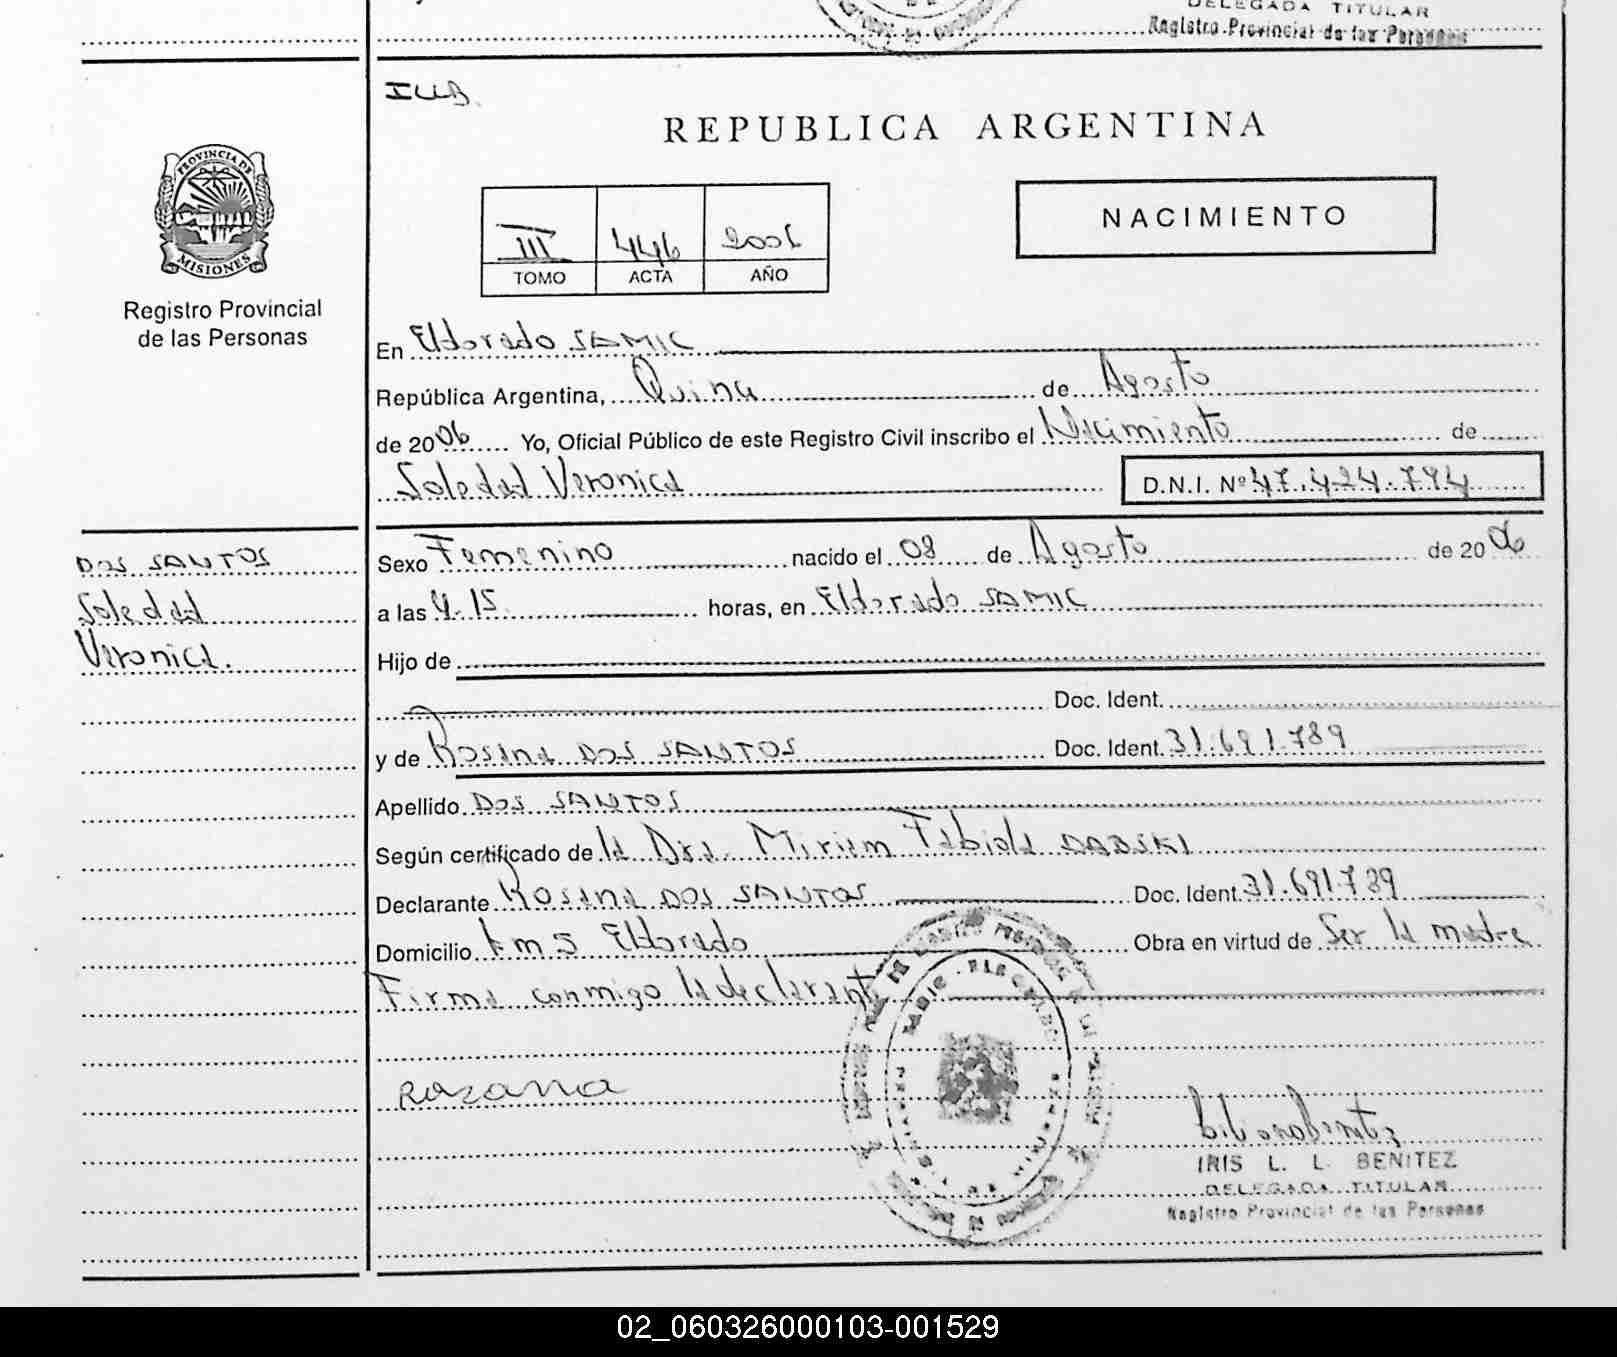 DELEGADA TITULAR
Registro Provincial de las Personas
REPUBLICA ARGENTINA
NACIMIENTO
III 446 2006
TOMO ACTA AÑO
PROVINCIA DE
MISIONES
Registro Provincial
de las Personas
En Eldorado SAMIC
República Argentina, Quince de Agosto
de 2006 Yo, Oficial Público de este Registro Civil inscribo el Nacimiento de
Soledad Veronica D.N.I. Nº 47.424.794
DOS SANTOS
Soledad
Veronica.
Sexo Femenino nacido el 08 de Agosto de 2006
a las 4.15 horas, en Eldorado SAMIC
Hijo de
Doc. Ident.
y de Rosana DOS SANTOS Doc. Ident. 31.691.789
Apellido DOS SANTOS
Según certificado de la Dra. Miriam Fabiola DABSKI
Declarante Rosana DOS SANTOS Doc. Ident. 31.691.789
Domicilio km 5 Eldorado Obra en virtud de Ser la madre
Firma conmigo la declarante
Rosana
IRIS L. L. BENITEZ
DELEGADA TITULAR
Registro Provincial de las Personas
02_060326000103-001529